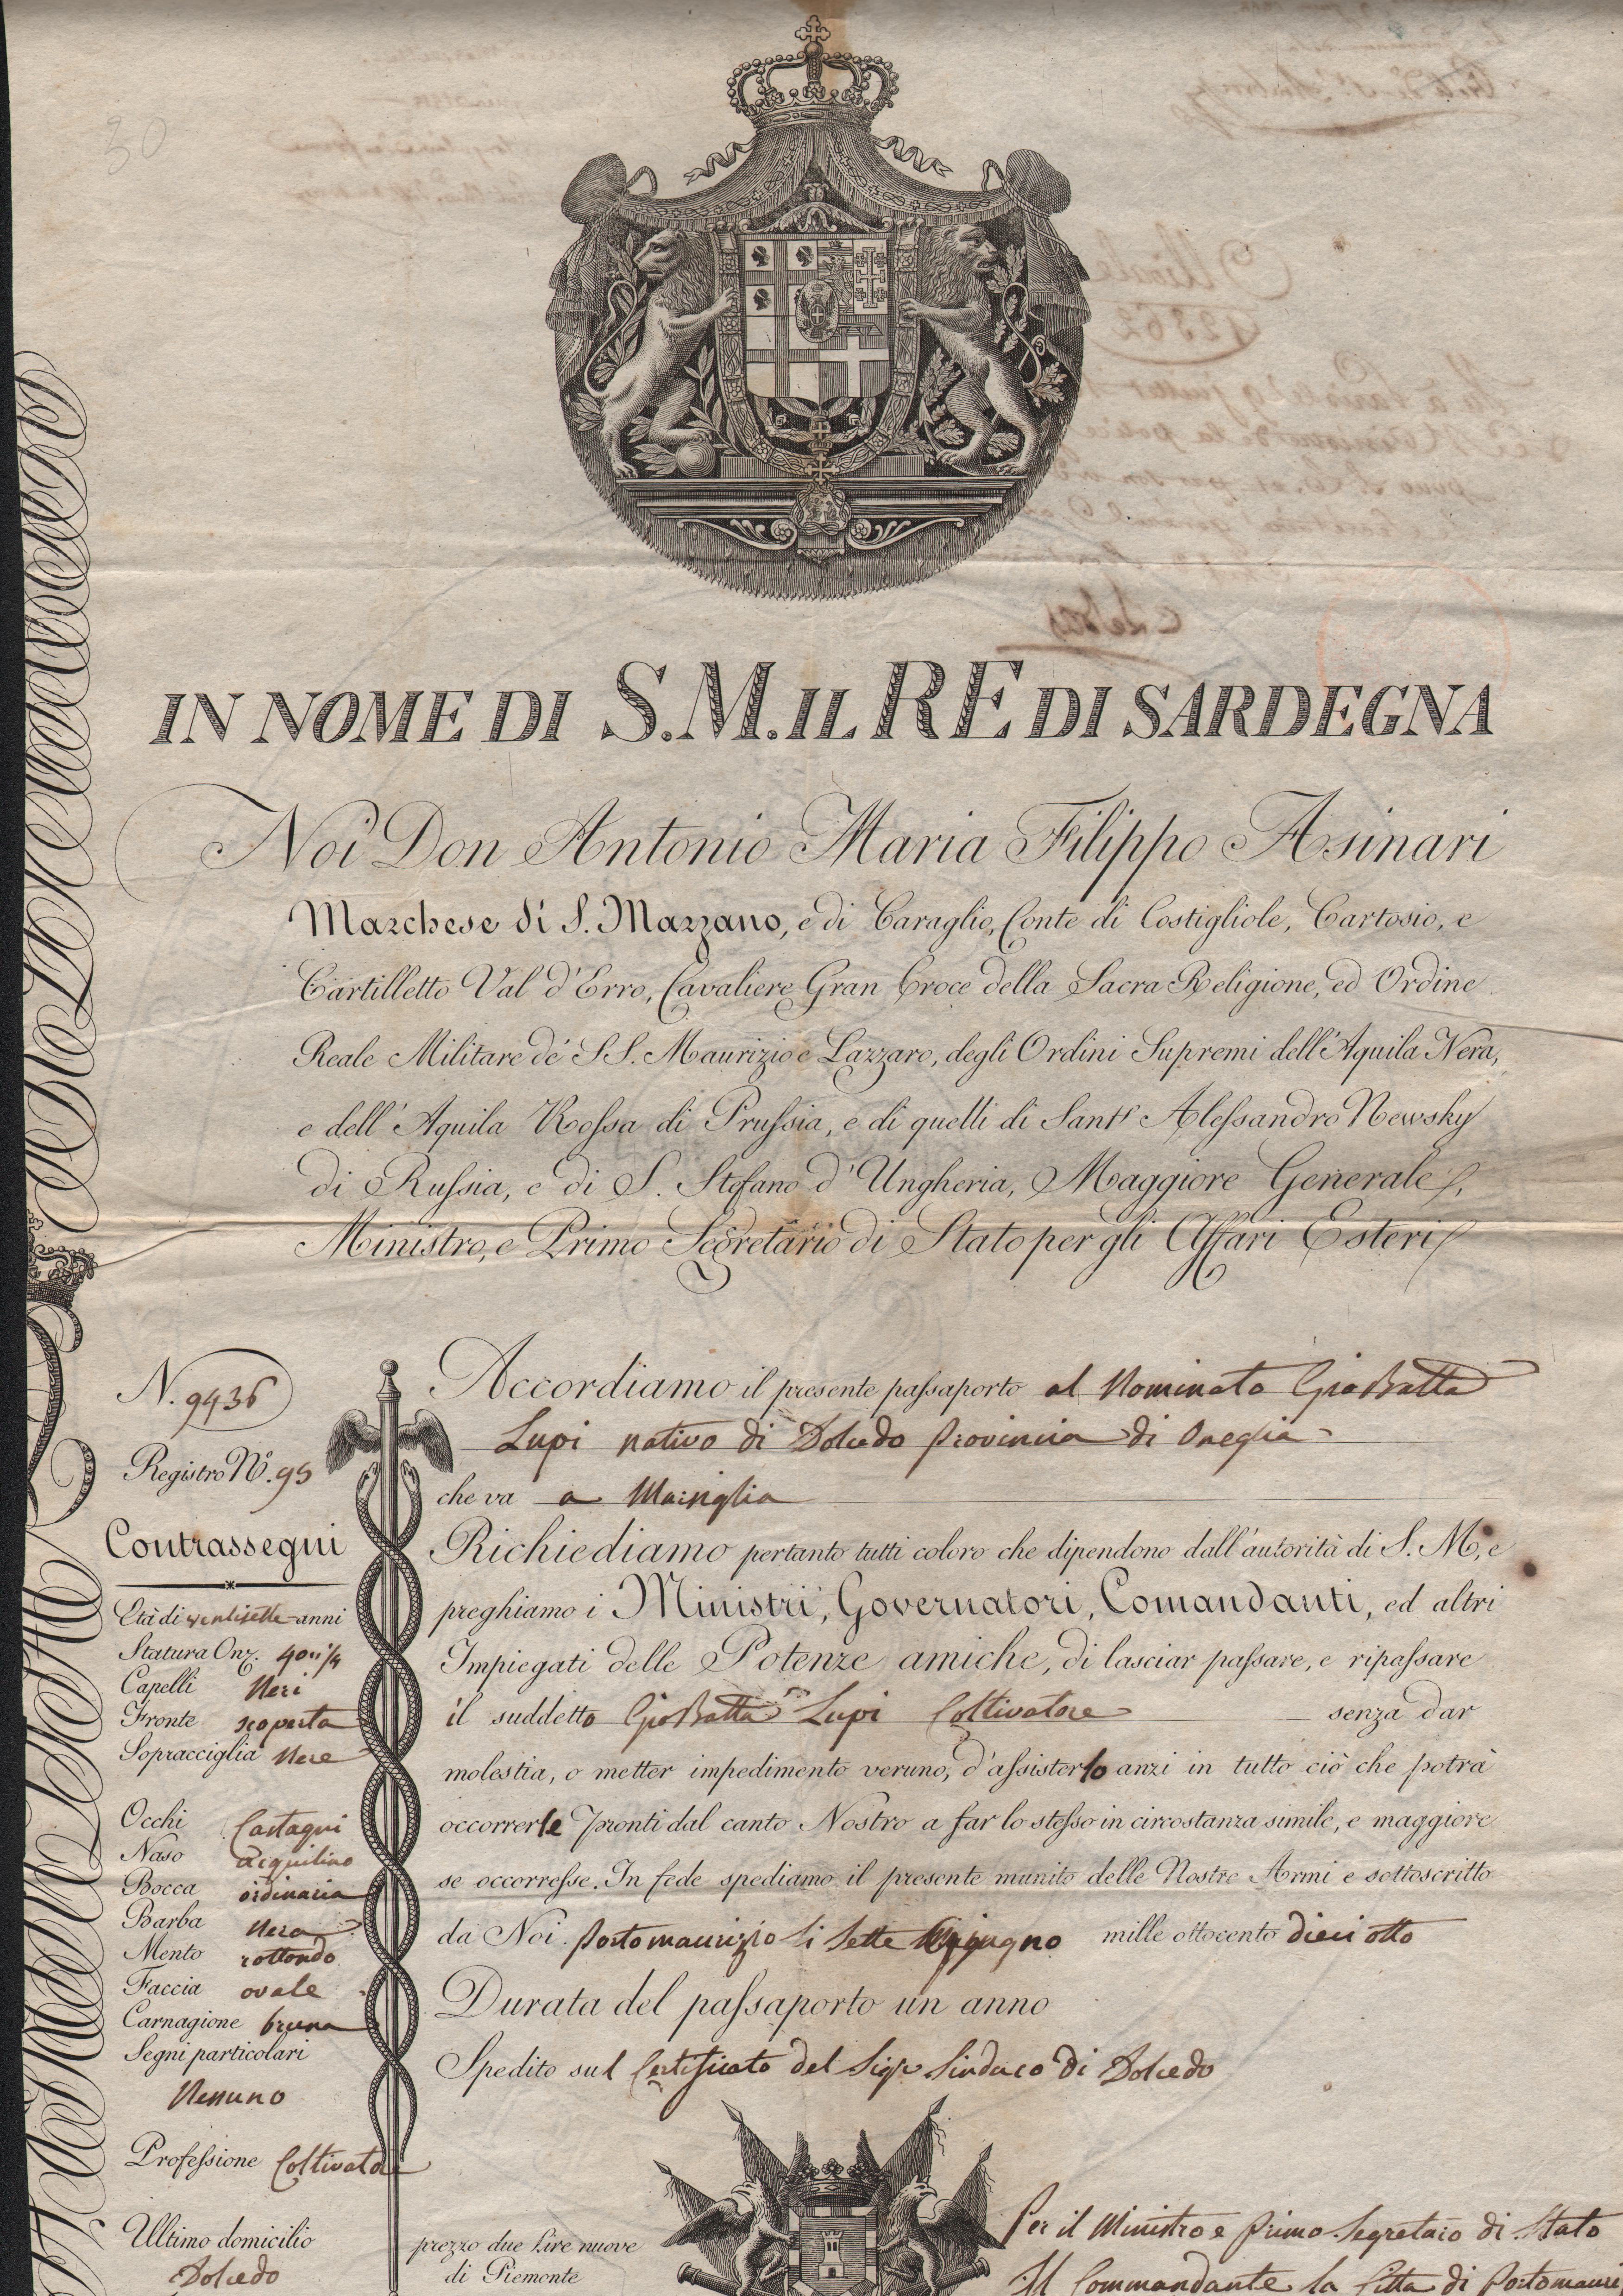 30
IN NOME DI S.M. IL RE DI SARDEGNA
Noi Don Antonio Maria Filippo Asinari
Marchese di S. Marzano, e di Caraglio, Conte di Costigliole, Cartosio, e
Cartilletto Val d'Erro, Cavaliere Gran Croce della Sacra Religione, ed Ordine
Reale Militare de' SS. Maurizio e Lazzaro, degli Ordini Supremi dell'Aquila Nera,
e dell'Aquila Rossa di Prussia, e di quelli di Sant' Alessandro Newsky
di Russia, e di S. Stefano d'Ungheria, Maggiore Generale,
Ministro, e Primo Segretario di Stato per gli Affari Esteri
N. 9436
Registro N.º 95
Contrassegni
Età di ventisette anni
Statura Onz.
Capelli Neri
Fronte scoperta
Sopracciglia Nere
Occhi Castagni
Naso acquilino
Bocca ordinaria
Barba Nera
Mento rottondo
Faccia ovale
Carnagione bruna
Segni particolari
Nessuno
Professione Coltivatore
Ultimo domicilio
Dolcedo
Accordiamo il presente passaporto al Nominato Gio Batta
Lupi nativo di Dolcedo Provincia di Oneglia
che va a Marsiglia
Richiediamo pertanto tutti coloro che dipendono dall'autorità di S. M., e
preghiamo i Ministri, Governatori, Comandanti, ed altri
Impiegati delle Potenze amiche, di lasciar passare, e ripassare
il suddetto Gio Batta Lupi Coltivatore senza dar
molestia, o metter impedimento veruno, d'assisterlo anzi in tutto ciò che potrà
occorrerle Pronti dal canto Nostro a far lo stesso in circostanza simile, e maggiore
se occorresse. In fede spediamo il presente munito delle Nostre Armi e sottoscritto
da Noi. Portomaurizio li Sette Giugno mille ottocento dieci otto
Durata del passaporto un anno
Spedito sul Certificato del Sigr Sindaco di Dolcedo
prezzo due Lire nuove
di Piemonte
Per il Ministro e Primo Segretaro di Stato
Il Commandante la Citta di Portomauri